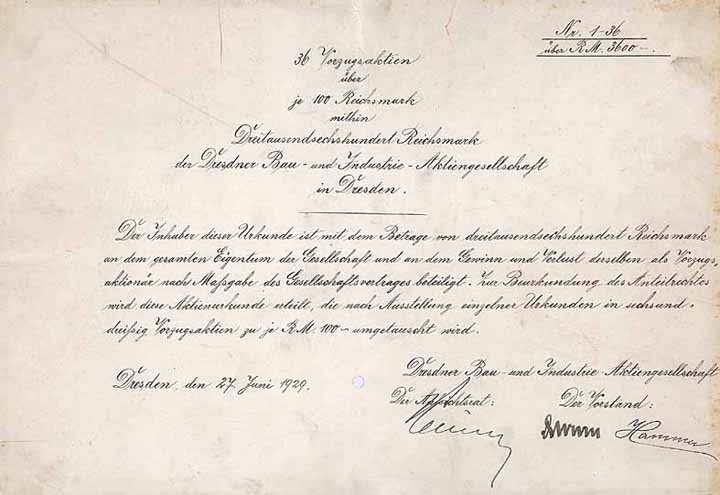 Nr. 1-36
über R.M. 3600-.
36 Vorzugsaktien
über
je 100 Reichsmark
mithin
Dreitausendsechshundert Reichsmark
der Dresdner Bau- und Industrie-Aktiengesellschaft
in Dresden.
Der Inhaber dieser Urkunde ist mit dem Betrage von dreitausendsechshundert Reichsmark
an dem gesamten Eigentum der Gesellschaft und an dem Gewinn und Verlust derselben als Vorzugs,
aktionär nach Maßgabe des Gesellschaftsvertrages beteiligt. Zur Beurkundung des Anteilrechtes
wird diese Aktienurkunde erteilt, die nach Ausstellung einzelner Urkunden in sechsund-
dreißig Vorzugsaktien zu je R.M. 100- umgetauscht wird.
Dresdner Bau- und Industrie-Aktiengesellschaft
Dresden, den 27. Juni 1929.
Der Aufsichtsrat: Der Vorstand:
Hammer